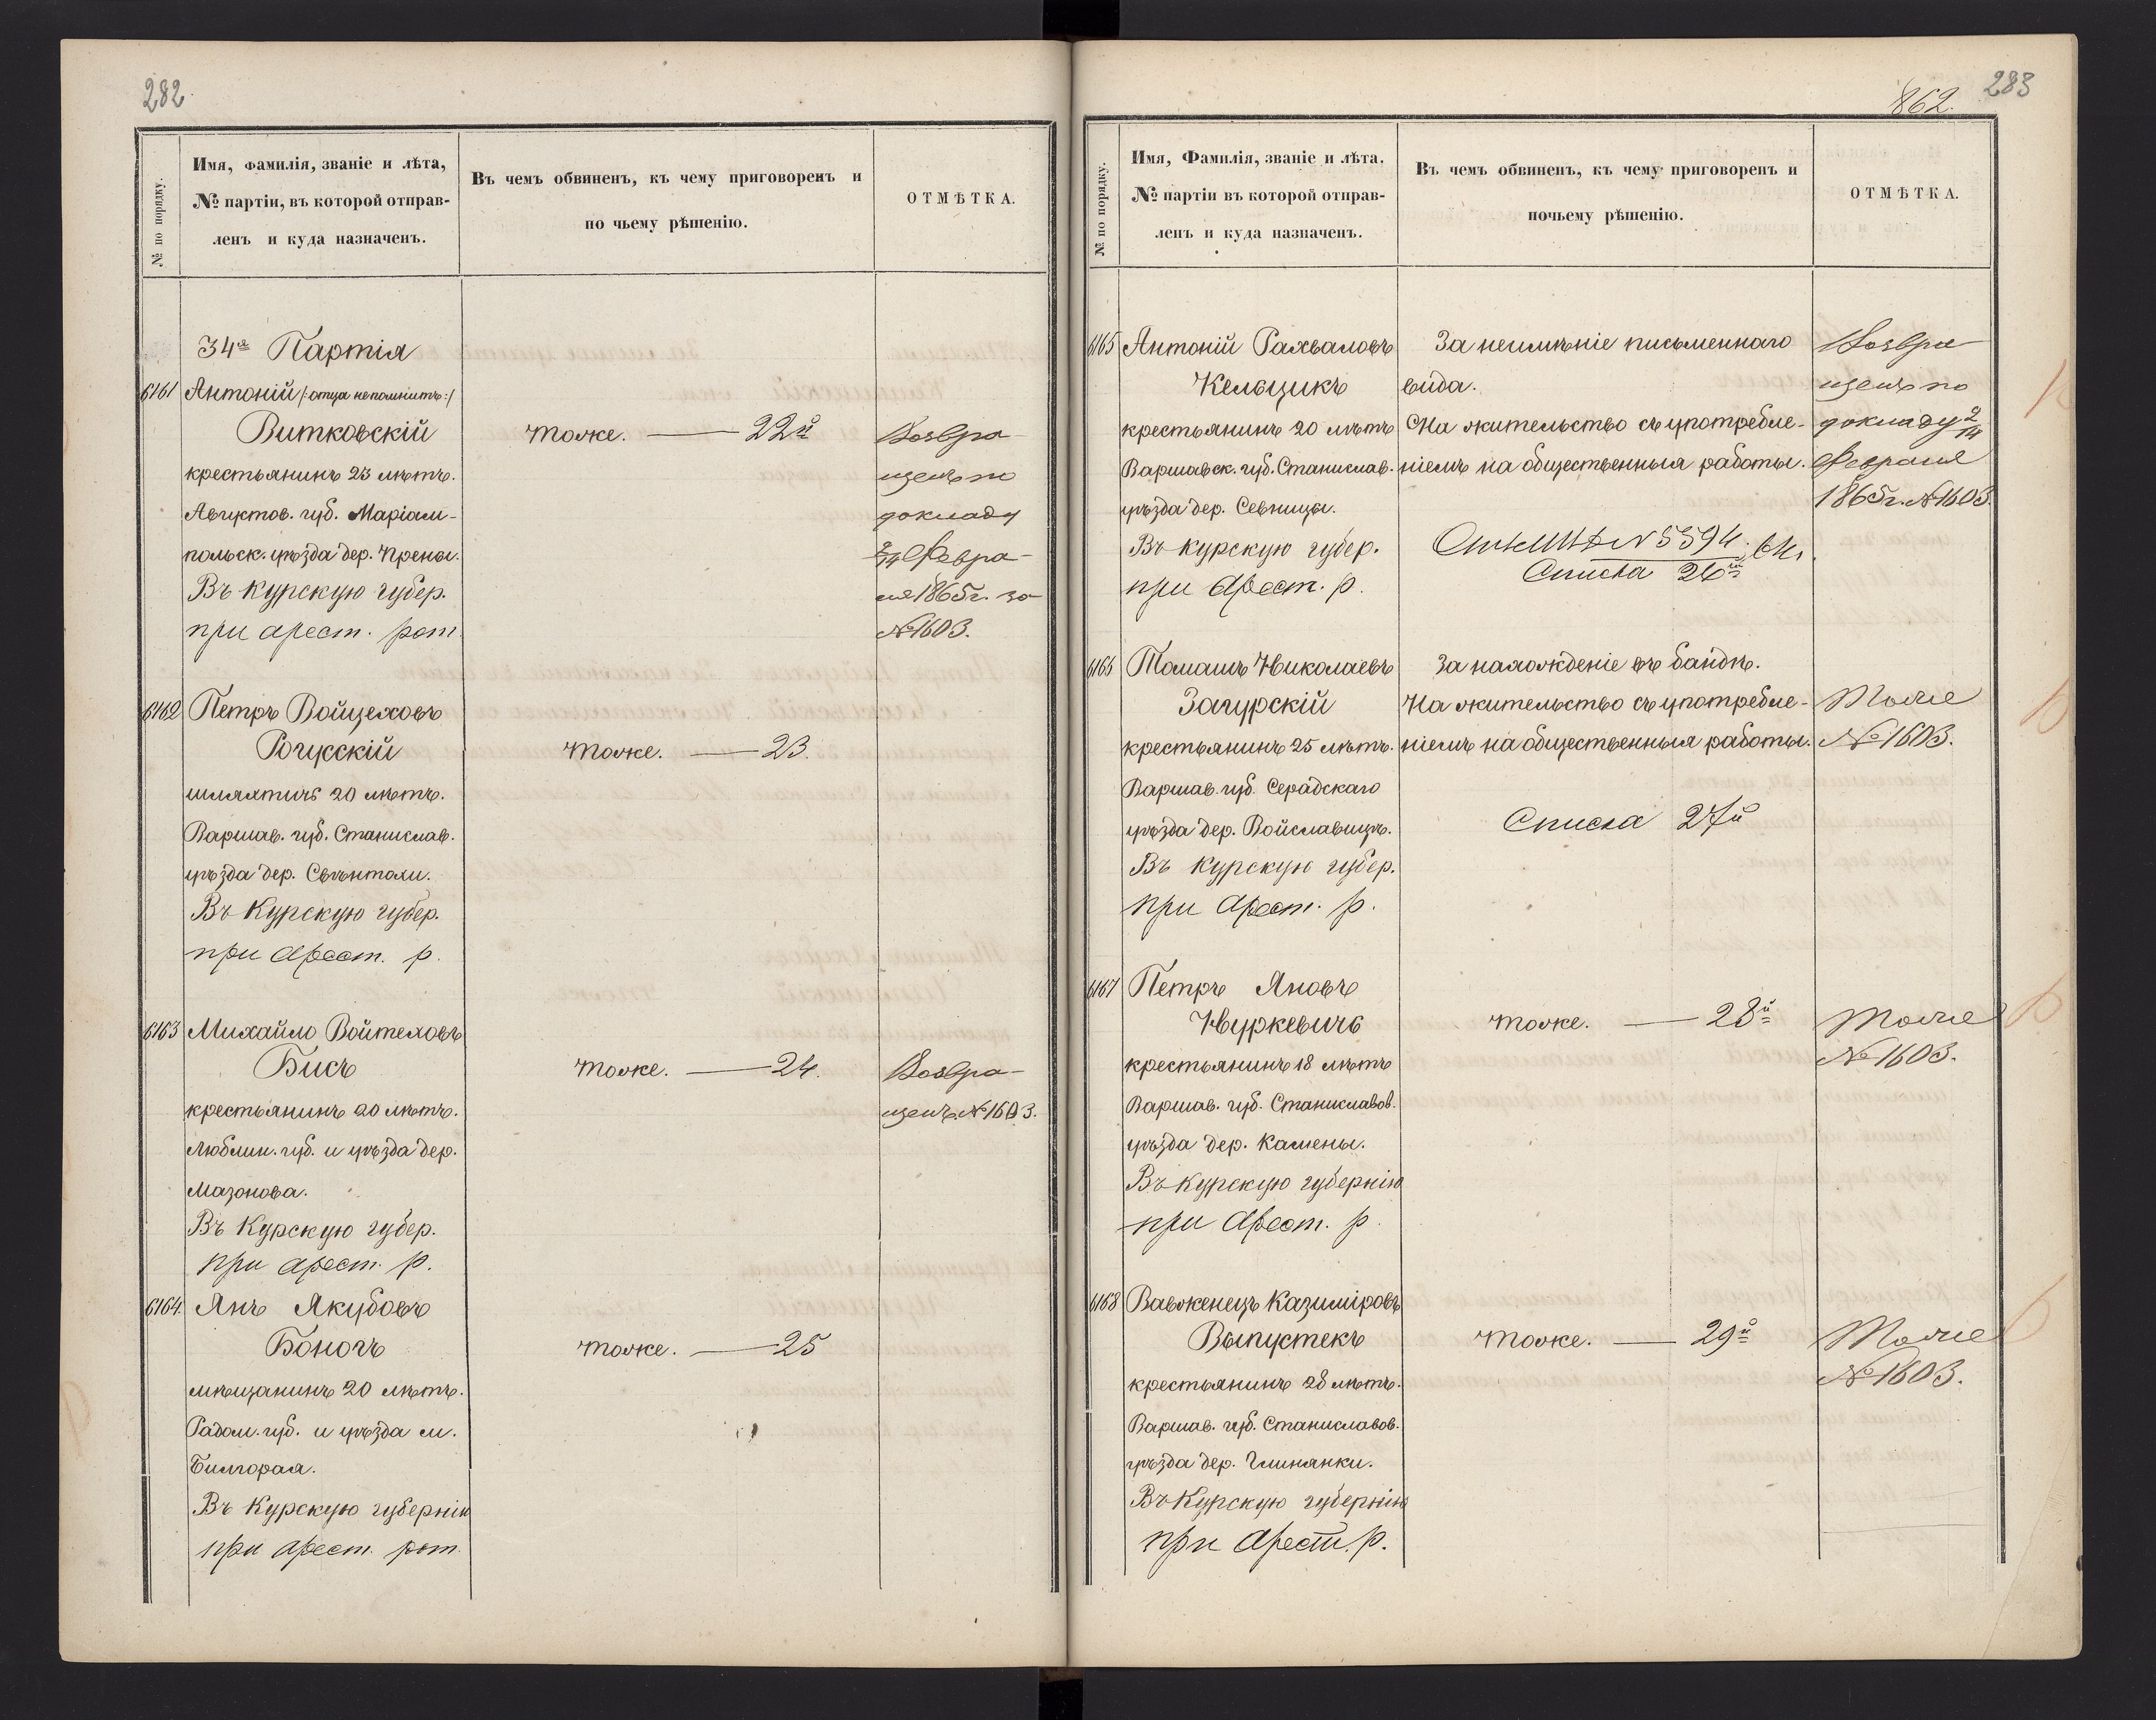 282
№ по порядку.
Имя, фамилія, званіе и лѣта,
№ партіи, въ которой отправ-
ленъ и куда назначенъ.
Въ чемъ обвиненъ, къ чему приговоренъ и
по чьему рѣшенію.
ОТМѢТКА.
34я Партія
6161 Антоній /:отца непомнитъ:/
Витковскій
тоже. — 22й
крестьянинъ 23 лѣтъ.
Августов. губ. Маріам-
польск. уѣзда дер. Прены.
Въ Курскую губер.
при арест. рот.
Возвра-
щенъ по
докладу
2/14 Февра-
ля 1865г. за
№1603.
6162 Петръ Войцеховъ
Рогускій
тоже. — 23.
шляхтичъ 20 лѣтъ.
Варшав. губ. Станислав.
уѣзда дер. Свѣнтохи.
Въ Курскую губер.
при Арест. р.
6163 Михайло Войтеховъ
Бисъ
тоже. — 24.
крестьянинъ 20 лѣтъ.
Люблин. губ. и уѣзда дер.
Мазонова.
Въ Курскую губер.
при арест. р.
Возвра-
щенъ №1603.
6164. Янъ Якубовъ
Боногъ
тоже. — 25
мѣщанинъ 20 лѣтъ.
Радом. губ. и уѣзда м.
Билгорая.
Въ Курскую губернію
при арест. рот.
283
862.
№ по порядку.
Имя, Фамилія, званіе и лѣта.
№ партіи въ которой отправ-
ленъ и куда назначенъ.
Въ чемъ обвиненъ, къ чему приговоренъ и
почьему рѣшенію.
ОТМѢТКА.
6165 Антоній Рахваловъ
Кельцикъ
крестьянинъ 20 лѣтъ
Варшавск. губ. Станислав.
уѣзда дер. Севницы.
Въ Курскую губер.
при Арест. р.
За неимѣніе письменнаго
вида.
На жительство съ употребле-
ніемъ на общественныя работы.
№5594.
Списка 26й
Возвра-
щенъ по
докладу 2/14
Февраля
1865г. №1603.
6166 Томашъ Николаевъ
Загурскій
крестьянинъ 25 лѣтъ.
Варшав. губ. Серадскаго
уѣзда дер. Войславицъ.
Въ Курскую губер.
при Арест. р.
За нахожденіе въ бандѣ.
На жительство съ употребле-
ніемъ на общественныя работы.
Списка 27й
Тоже
№1603.
6167 Петръ Яновъ
Нуркевичъ
тоже. — 28й
крестьянинъ 18 лѣтъ
Варшав. губ. Станиславов.
уѣзда дер. Камены.
Въ Курскую губернію
при Арест. р.
Тоже
№1603.
6168 Вавженецъ Казиміровъ
Выпустекъ
тоже. — 29й
крестьянинъ 28 лѣтъ.
Варшав. губ. Станиславов.
уѣзда дер. Глинянки.
Въ Курскую губернію
при Арест. р.
Тоже
№1603.